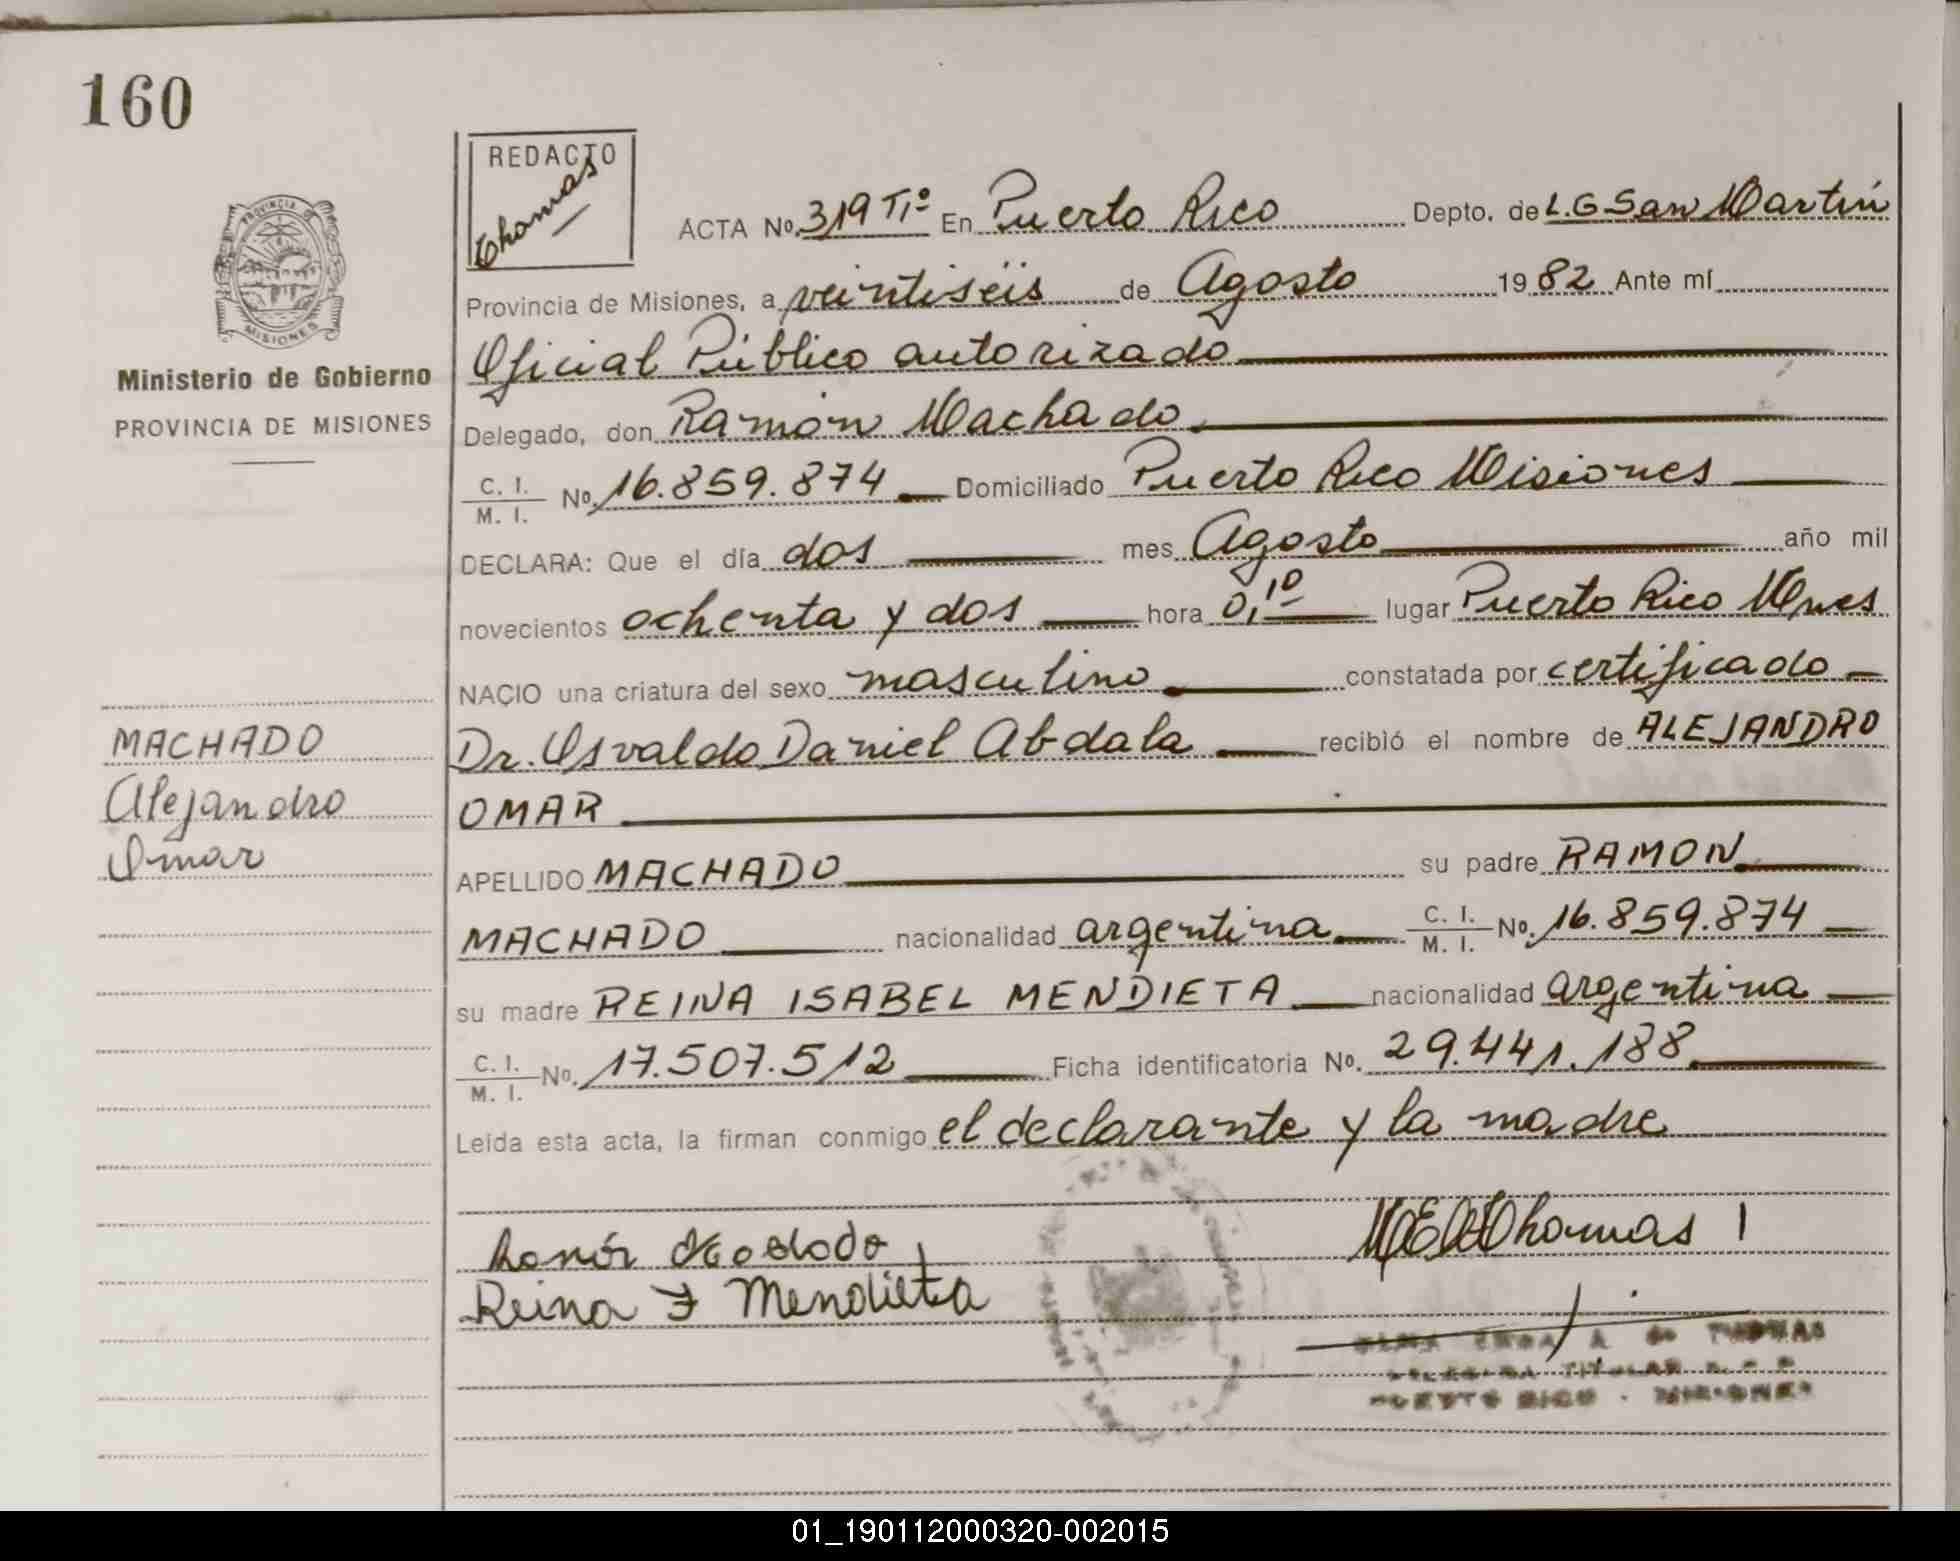 160
REDACTO
Thomas
PROVINCIA DE
MISIONES
Ministerio de Gobierno
PROVINCIA DE MISIONES
ACTA No. 319 Tº En Puerto Rico Depto. de L.G San Martín
Provincia de Misiones, a veintiséis de Agosto 1982 Ante mí
Oficial Público autorizado
Delegado, don Ramón Machado
C. I. / M. I. No. 16.859.874 Domiciliado Puerto Rico Misiones
DECLARA: Que el día dos mes Agosto año mil
novecientos ochenta y dos hora 0,10 lugar Puerto Rico Mnes
NACIO una criatura del sexo masculino constatada por certificado
Dr. Osvaldo Daniel Abdala recibió el nombre de ALEJANDRO
OMAR
MACHADO
Alejandro
Omar
APELLIDO MACHADO su padre RAMON
MACHADO nacionalidad argentina C. I. / M. I. No. 16.859.874
su madre REINA ISABEL MENDIETA nacionalidad argentina
C. I. / M. I. No. 17.507.512 Ficha identificatoria No. 29.441.188
Leída esta acta, la firman conmigo el declarante y la madre
Reina I Mendieta
Thomas
A de THOMAS
TITULAR
PUERTO RICO - MISIONES
01_190112000320-002015